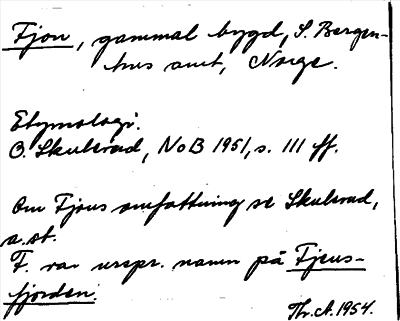 Fjon, gammal bygd, S. Bergen-
hus amt, Norge.
Etymologi.
O. Skulerud, NoB 1951, s. 111 ff.
Om Fjons omfattning se Skulerud,
a.st.
F. var urspr. namn på Fjeus-
fjorden.
Th. A. 1954.